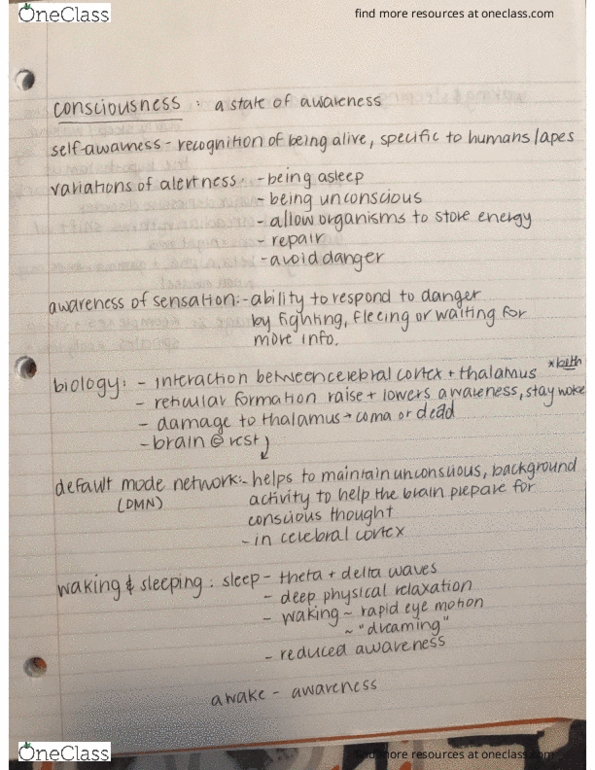 OneClass
find more resources at oneclass.com
consciousness : a state of awareness
self-awarness - recognition of being alive, specific to humans/apes
variations of alertness: - being asleep
- being unconscious
- allow organisms to store energy
- repair
- avoid danger
awareness of sensation: - ability to respond to danger
by fighting, fleeing or waiting for
more info.
*both
biology: - interaction between celebral cortex + thalamus
- reticular formation raise + lowers awareness, stay woke
- damage to thalamus → coma or dead
- brain @ rest
default mode network: - helps to maintain unconscious, background
(DMN) activity to help the brain prepare for
conscious thought
- in celebral cortex
waking & sleeping : sleep - theta + delta waves
- deep physical relaxation
- waking ~ rapid eye motion
~ "dreaming"
- reduced awareness
awake - awareness
OneClass
find more resources at oneclass.com